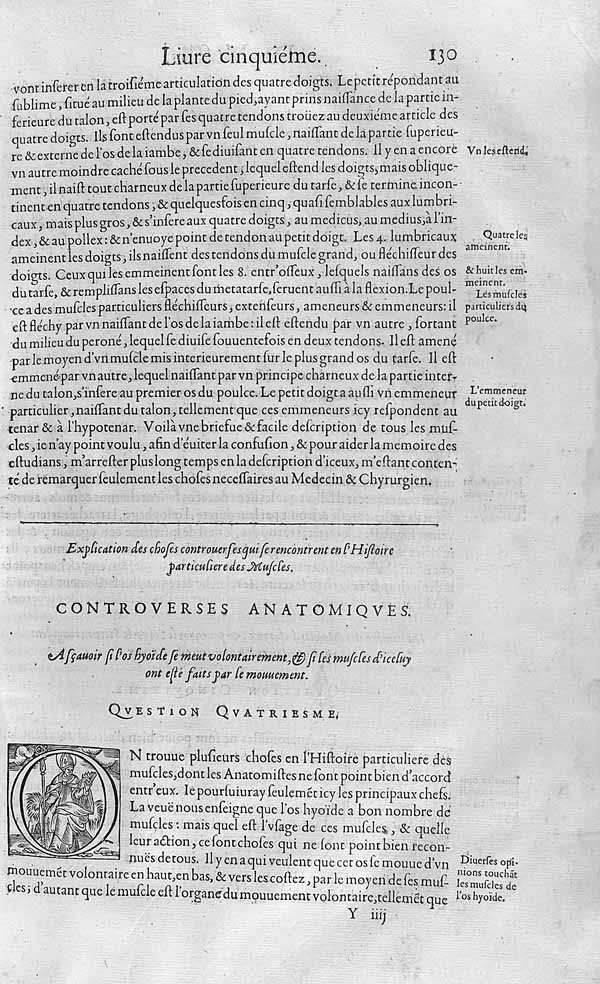 Liure cinquiéme. 130
vont inserer en la troisiéme articulation des quatre doigts. Le petit répondant au
sublime, situé au milieu de la plante du pied, ayant prins naissance de la partie in-
ferieure du talon, est porté par ses quatre tendons trouëz au deuxiéme article des
quatre doigts. Ils sont estendus par vn seul muscle, naissant de la partie superieu-
re & externe de l'os de la iambe, & se diuisant en quatre tendons. Il y en a encore
vn autre moindre caché sous le precedent, lequel estend les doigts, mais oblique-
ment, il naist tout charneux de la partie superieure du tarse, & se termine incon-
tinent en quatre tendons, & quelquesfois en cinq, quasi semblables aux lumbri-
caux, mais plus gros, & s'insere aux quatre doigts, au medicus, au medius, à l'in-
dex, & au pollex: & n'enuoye point de tendon au petit doigt. Les 4. lumbricaux
ameinent les doigts, ils naissent des tendons du muscle grand, ou fléchisseur des
doigts. Ceux qui les emmeinent sont les 8. entr'osseux, lesquels naissans des os
du tarse, & remplissans les espaces du metatarse, seruent aussi à la flexion. Le poul-
ce a des muscles particuliers fléchisseurs, extenseurs, ameneurs & emmeneurs: il
est fléchy par vn naissant de l'os de la iambe: il est estendu par vn autre, sortant
du milieu du peroné, lequel se diuise souuentefois en deux tendons. Il est amené
par le moyen d'vn muscle mis interieurement sur le plus grand os du tarse. Il est
emmené par vn autre, lequel naissant par vn principe charneux de la partie inter-
ne du talon, s'insere au premier os du poulce. Le petit doigt a aussi vn emmeneur
particulier, naissant du talon, tellement que ces emmeneurs icy respondent au
tenar & à l'hypotenar. Voilà vne briefue & facile description de tous les mus-
cles, ie n'ay point voulu, afin d'éuiter la confusion, & pour aider la memoire des
estudians, m'arrester plus long temps en la description d'iceux, m'estant conten-
té de remarquer seulement les choses necessaires au Medecin & Chyrurgien.
Vn les estend,
Quatre les
ameinent.
& huit les em-
meinent.
Les muscles
particuliers du
poulce.
L'emmeneur
du petit doigt.
Explication des choses controuerses qui se rencontrent en l'Histoire
particuliere des Muscles.
CONTROVERSES ANATOMIQVES.
Asçauoir si l'os hyoïde se meut volontairement, & si les muscles d'iceluy
ont esté faits par le mouuement.
QVESTION QVATRIESME.
ON trouue plusieurs choses en l'Histoire particuliere des
muscles, dont les Anatomistes ne sont point bien d'accord
entr'eux. Ie poursuiuray seulemét icy les principaux chefs.
La veuë nous enseigne que l'os hyoïde a bon nombre de
muscles: mais quel est l'vsage de ces muscles, & quelle
leur action, ce sont choses qui ne sont point bien recon-
nuës de tous. Il y en a qui veulent que cet os se mouue d'vn
mouuemét volontaire en haut, en bas, & vers les costez, par le moyen de ses mus-
cles; d'autant que le muscle est l'organe du mouuement volontaire, tellemét que
Diuerses opi-
nions touchãt
les muscles de
l'os hyoïde.
Y iiij